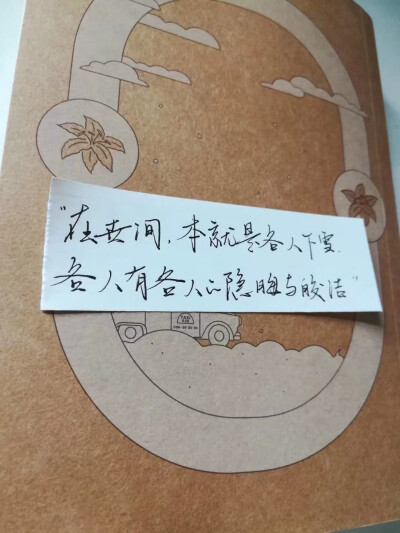 “在世间，本就是各人下雪，
各人有各人的隐晦与皎洁”
TAXI